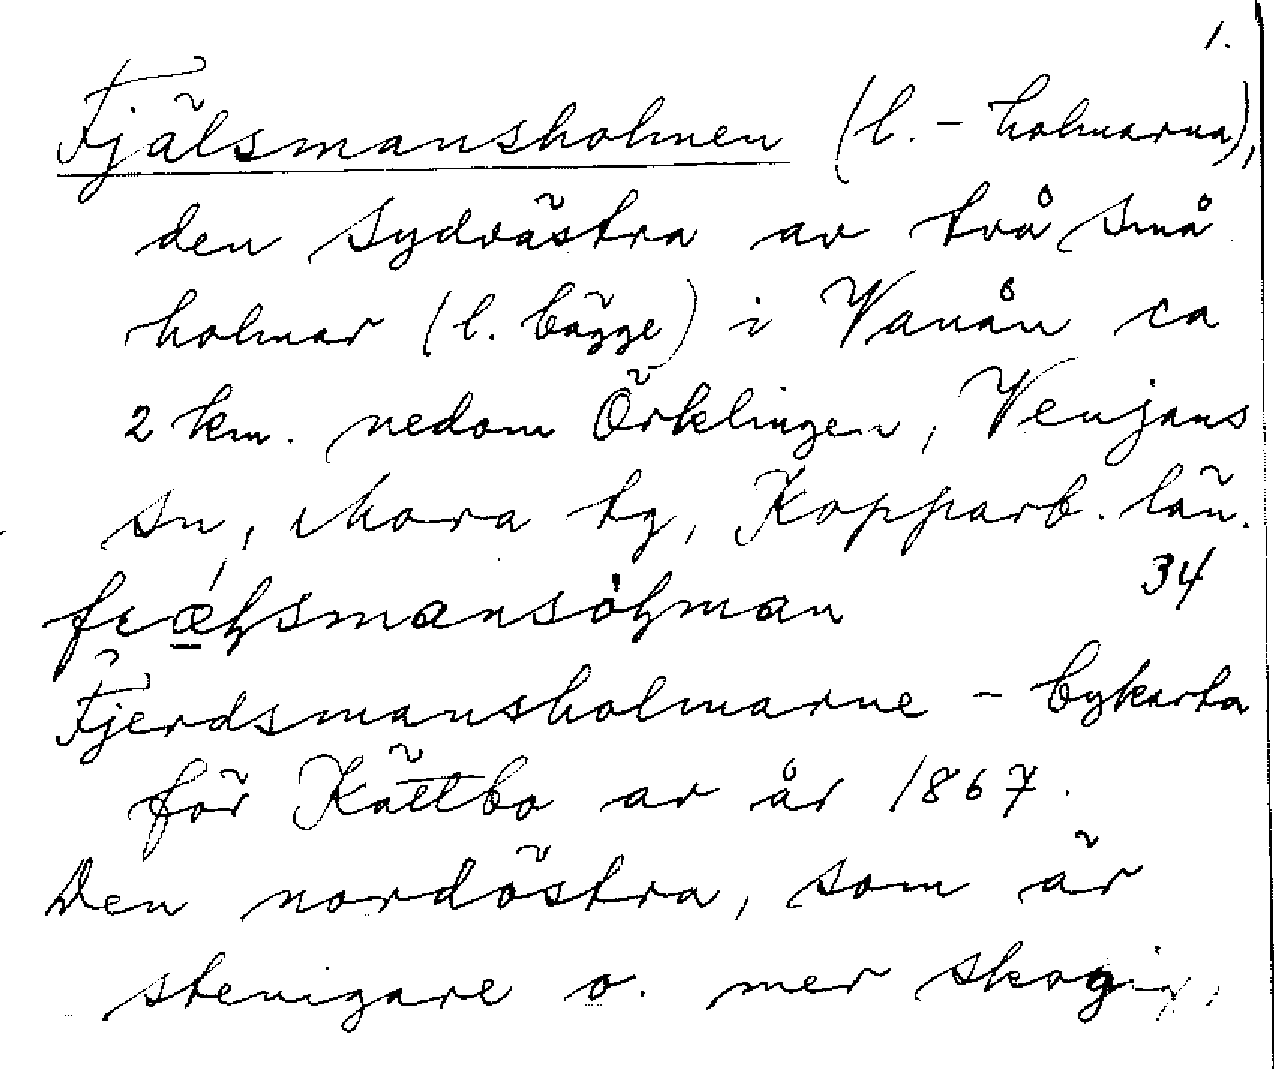 1.
Fjälsmansholmen (l. -holmarna),
den sydvästra av två små
holmar (l. bägge) i Vanån ca
2 km. nedom Örklingen, Venjans
sn, Mora tg, Kopparb. län.
34
Fjerdsmansholmarne - bykarta
för Kättbo av år 1867.
Den nordöstra, som är
stenigare o. mer skogig,